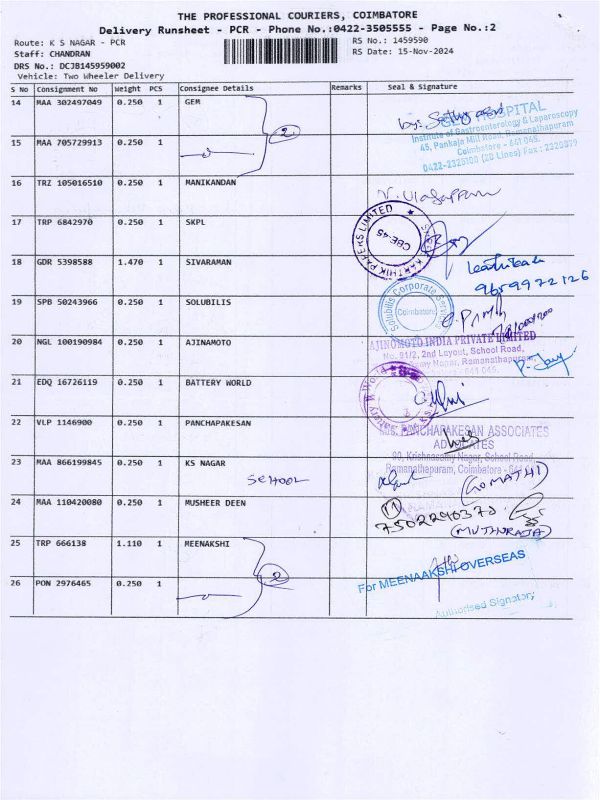 THE PROFESSIONAL COURIERS, COIMBATORE
Delivery Runsheet - PCR - Phone No.:0422-3505555 - Page No.:2
Route: K S NAGAR - PCR
RS No.: 1459590
Staff: CHANDRAN
RS Date: 15-Nov-2024
DRS No.: DCJB145959002
Vehicle: Two Wheeler Delivery
S No Consignment No Weight PCS Consignee Details Remarks Seal & Signature
14 MAA 302497049 0.250 1 GEM
2
HOSPITAL
Institute of Gastroenterology & Laparoscopy
45, Pankaja Mill Road, Ramanathapuram
Coimbatore - 641 045.
15 MAA 705729913 0.250 1
16 TRZ 105016510 0.250 1 MANIKANDAN
17 TRP 6842970 0.250 1 SKPL
KARTHIK PAPERS LIMITED
CBE-45
18 GDR 5398588 1.470 1 SIVARAMAN
9659972126
19 SPB 50243966 0.250 1 SOLUBILIS
Solubilis Corporate
Coimbatore
20 NGL 100190984 0.250 1 AJINAMOTO
AJINOMOTO INDIA PRIVATE LIMITED
No. 91/2, 2nd Layout, School Road,
Nagar, Ramanathapuram,
641 045.
21 EDQ 16726119 0.250 1 BATTERY WORLD
Battery World
22 VLP 1146900 0.250 1 PANCHAPAKESAN
PANCHAPAKESAN ASSOCIATES
ADVOCATES
90, Krishnasamy Nagar, School Road,
Ramanathapuram, Coimbatore - 641 045
23 MAA 866199845 0.250 1 KS NAGAR
SCHOOL
(GOMATHI)
24 MAA 110420080 0.250 1 MUSHEER DEEN
11
7502296378
(MUTHURAJA)
25 TRP 666138 1.110 1 MEENAKSHI
2
For MEENAAKSHI OVERSEAS
26 PON 2976465 0.250 1
Authorised Signatory